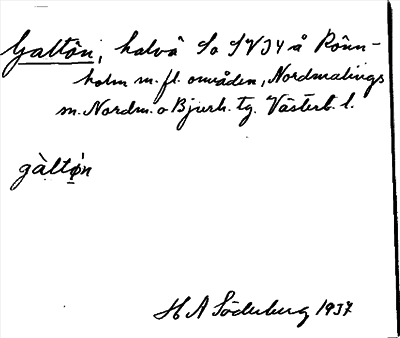 Galtön, halvö Sa SV34 å Rönn-
holm m. fl. områden, Nordmalings
m. Nordm. o Bjurh. tg. Västerb. l.
gàltø̀n
H A Söderberg 1937